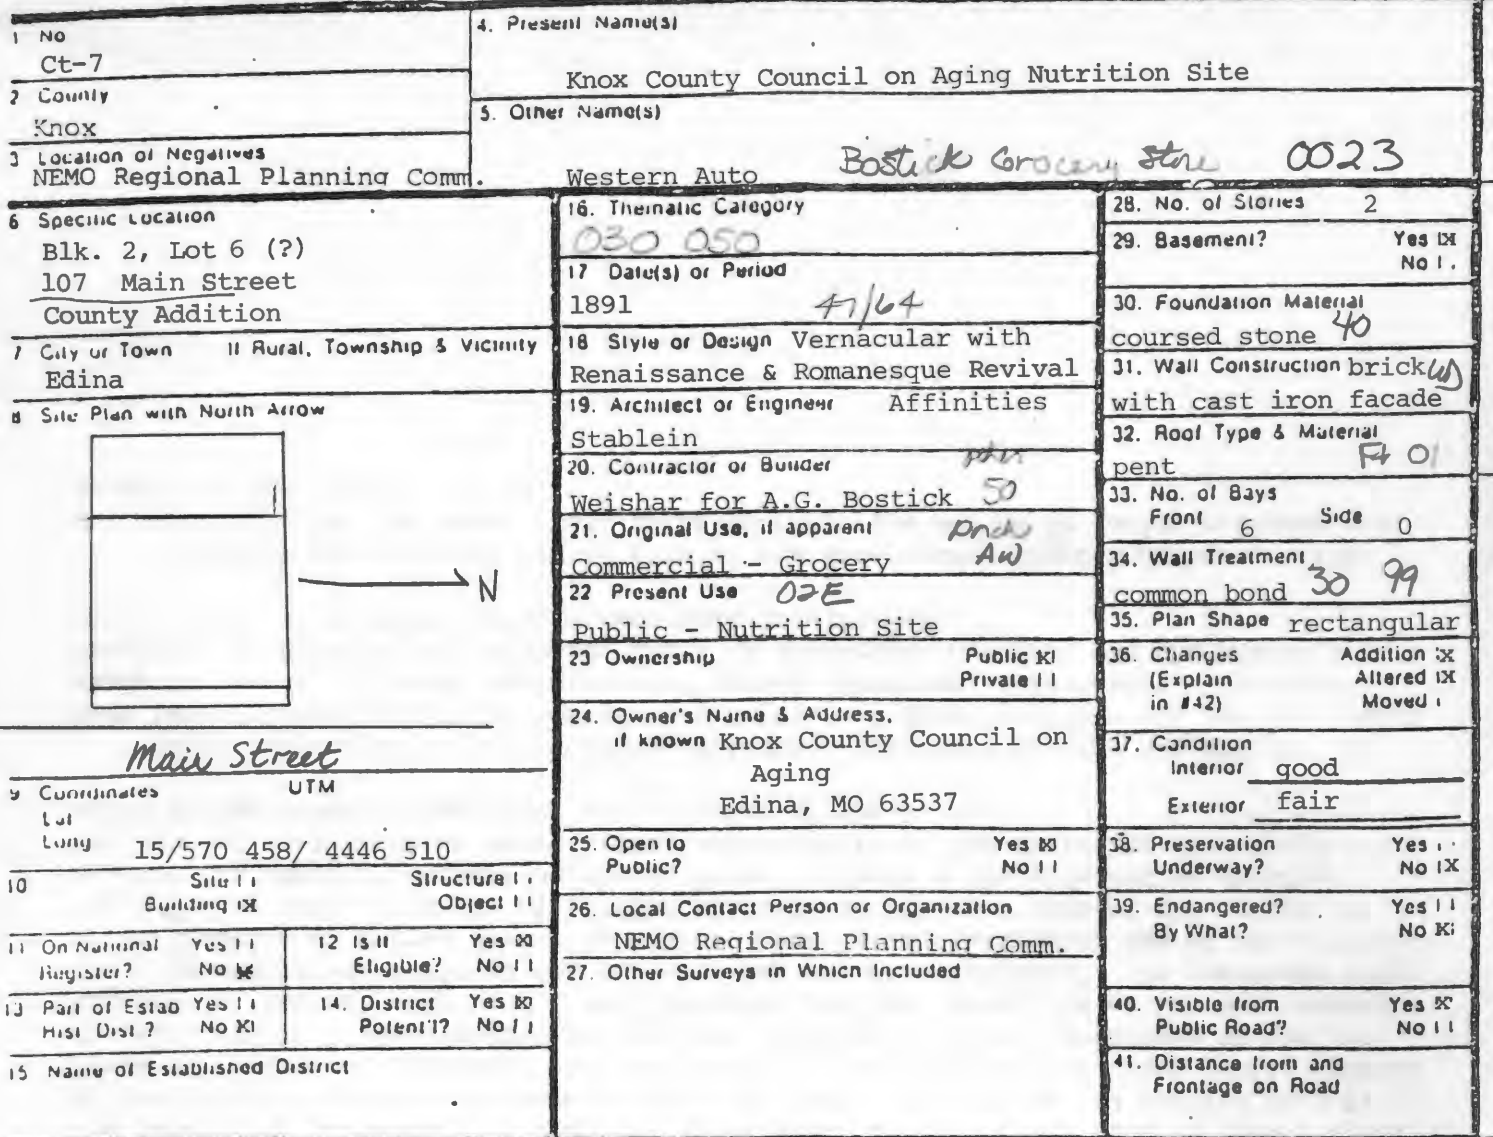 1 No
Ct-7
2 County
Knox
3 Location of Negatives
NEMO Regional Planning Comm.
4. Present Name(s)
Knox County Council on Aging Nutrition Site
5. Other Name(s)
Western Auto Bostick Grocery Store 0023
6 Specific Location
Blk. 2, Lot 6 (?)
107 Main Street
County Addition
7 City or Town If Rural, Township & Vicinity
Edina
8 Site Plan with North Arrow
N
Main Street
9 Coordinates UTM
Lat
Long 15/570 458/ 4446 510
10 Site Structure
Building X Object
11 On National Yes
Register? No X
12 Is It Yes X
Eligible? No
13 Part of Estab Yes
Hist Dist? No X
14. District Yes X
Potent'l? No
15 Name of Established District
16. Thematic Category
030 050
17 Date(s) or Period
1891 47/64
18 Style or Design Vernacular with
Renaissance & Romanesque Revival
19. Architect or Engineer Affinities
Stablein
20. Contractor or Builder
Weishar for A.G. Bostick 50
21. Original Use, if apparent
Commercial - Grocery AW
22 Present Use 02E
Public - Nutrition Site
23 Ownership Public X
Private
24. Owner's Name & Address,
if known Knox County Council on
Aging
Edina, MO 63537
25. Open to Yes X
Public? No
26. Local Contact Person or Organization
NEMO Regional Planning Comm.
27. Other Surveys in Which Included
28. No. of Stories 2
29. Basement? Yes X
No
30. Foundation Material
coursed stone 40
31. Wall Construction brick
with cast iron facade
32. Roof Type & Material
pent Ft 01
33. No. of Bays
Front 6 Side 0
34. Wall Treatment
common bond 30 99
35. Plan Shape rectangular
36. Changes Addition X
(Explain Altered X
in #42) Moved
37. Condition
Interior good
Exterior fair
38. Preservation Yes
Underway? No X
39. Endangered? Yes
By What? No X
40. Visible from Yes X
Public Road? No
41. Distance from and
Frontage on Road